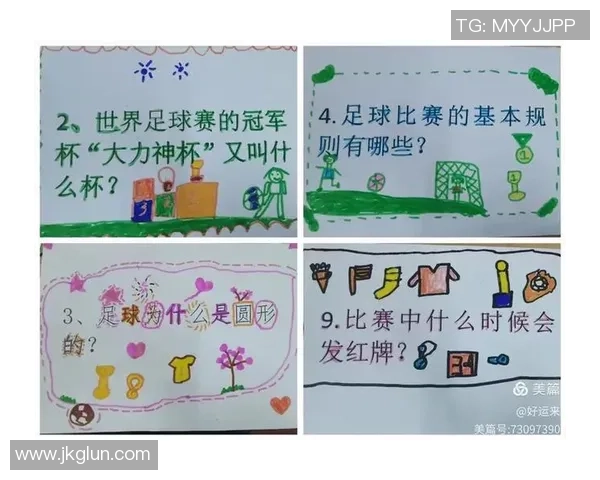 TG: MYYJJPP
2、世界足球赛的冠军
杯“大力神杯”又叫什
么杯？
4.足球比赛的基本规
则有哪些？
3、足球为什么是圆形
的？
9.比赛中什么时候会
发红牌？
美篇
@好运来
美篇号:73097390
www.jkglun.com